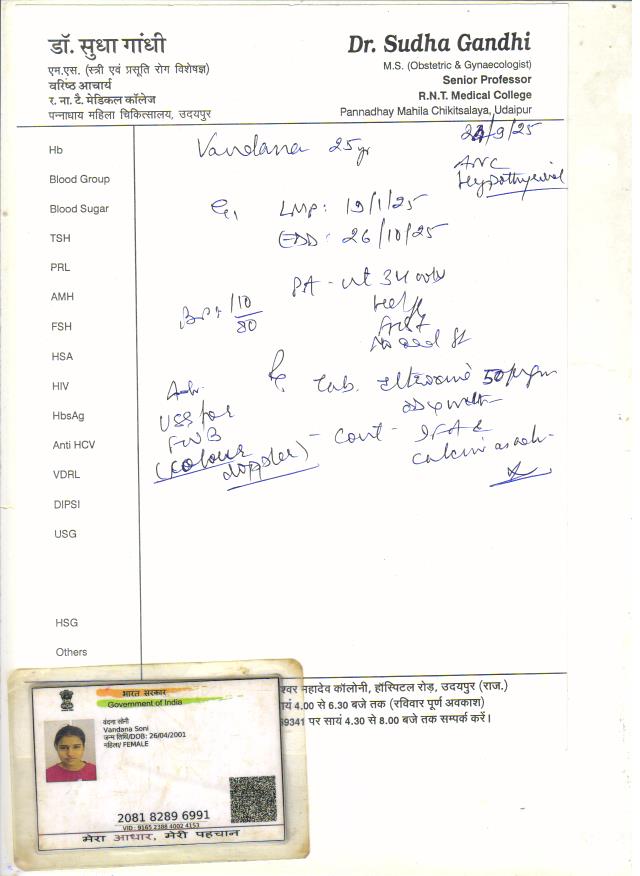 डॉ. सुधा गांधी
एम.एस. (स्त्री एवं प्रसूति रोग विशेषज्ञ)
वरिष्ठ आचार्य
र. ना. टै. मेडिकल कॉलेज
पन्नाधाय महिला चिकित्सालय, उदयपुर
Dr. Sudha Gandhi
M.S. (Obstetric & Gynaecologist)
Senior Professor
R.N.T. Medical College
Pannadhay Mahila Chikitsalaya, Udaipur
Hb
Blood Group
Blood Sugar
TSH
PRL
AMH
FSH
HSA
HIV
HbsAg
Anti HCV
VDRL
DIPSI
USG
HSG
Others
Vandana 25 yr
/9/25
ANC
Hypothyroid
G1 LMP: 19/1/25
EDD: 26/10/25
PA - ut 34 wks
BP: 110/80
Tab. 50
Adv.
USS for
FWB
(Colour
doppler)
- Cont - IFA &
Calcium as adv.
महादेव कॉलोनी, हॉस्पिटल रोड़, उदयपुर (राज.)
4.00 से 6.30 बजे तक (रविवार पूर्ण अवकाश)
69341 पर सायं 4.30 से 8.00 बजे तक सम्पर्क करें।
भारत सरकार
Government of India
वंदना सोनी
Vandana Soni
जन्म तिथि/DOB: 26/04/2001
महिला/ FEMALE
2081 8289 6991
VID : 9165 2388 4002 4153
मेरा आधार, मेरी पहचान